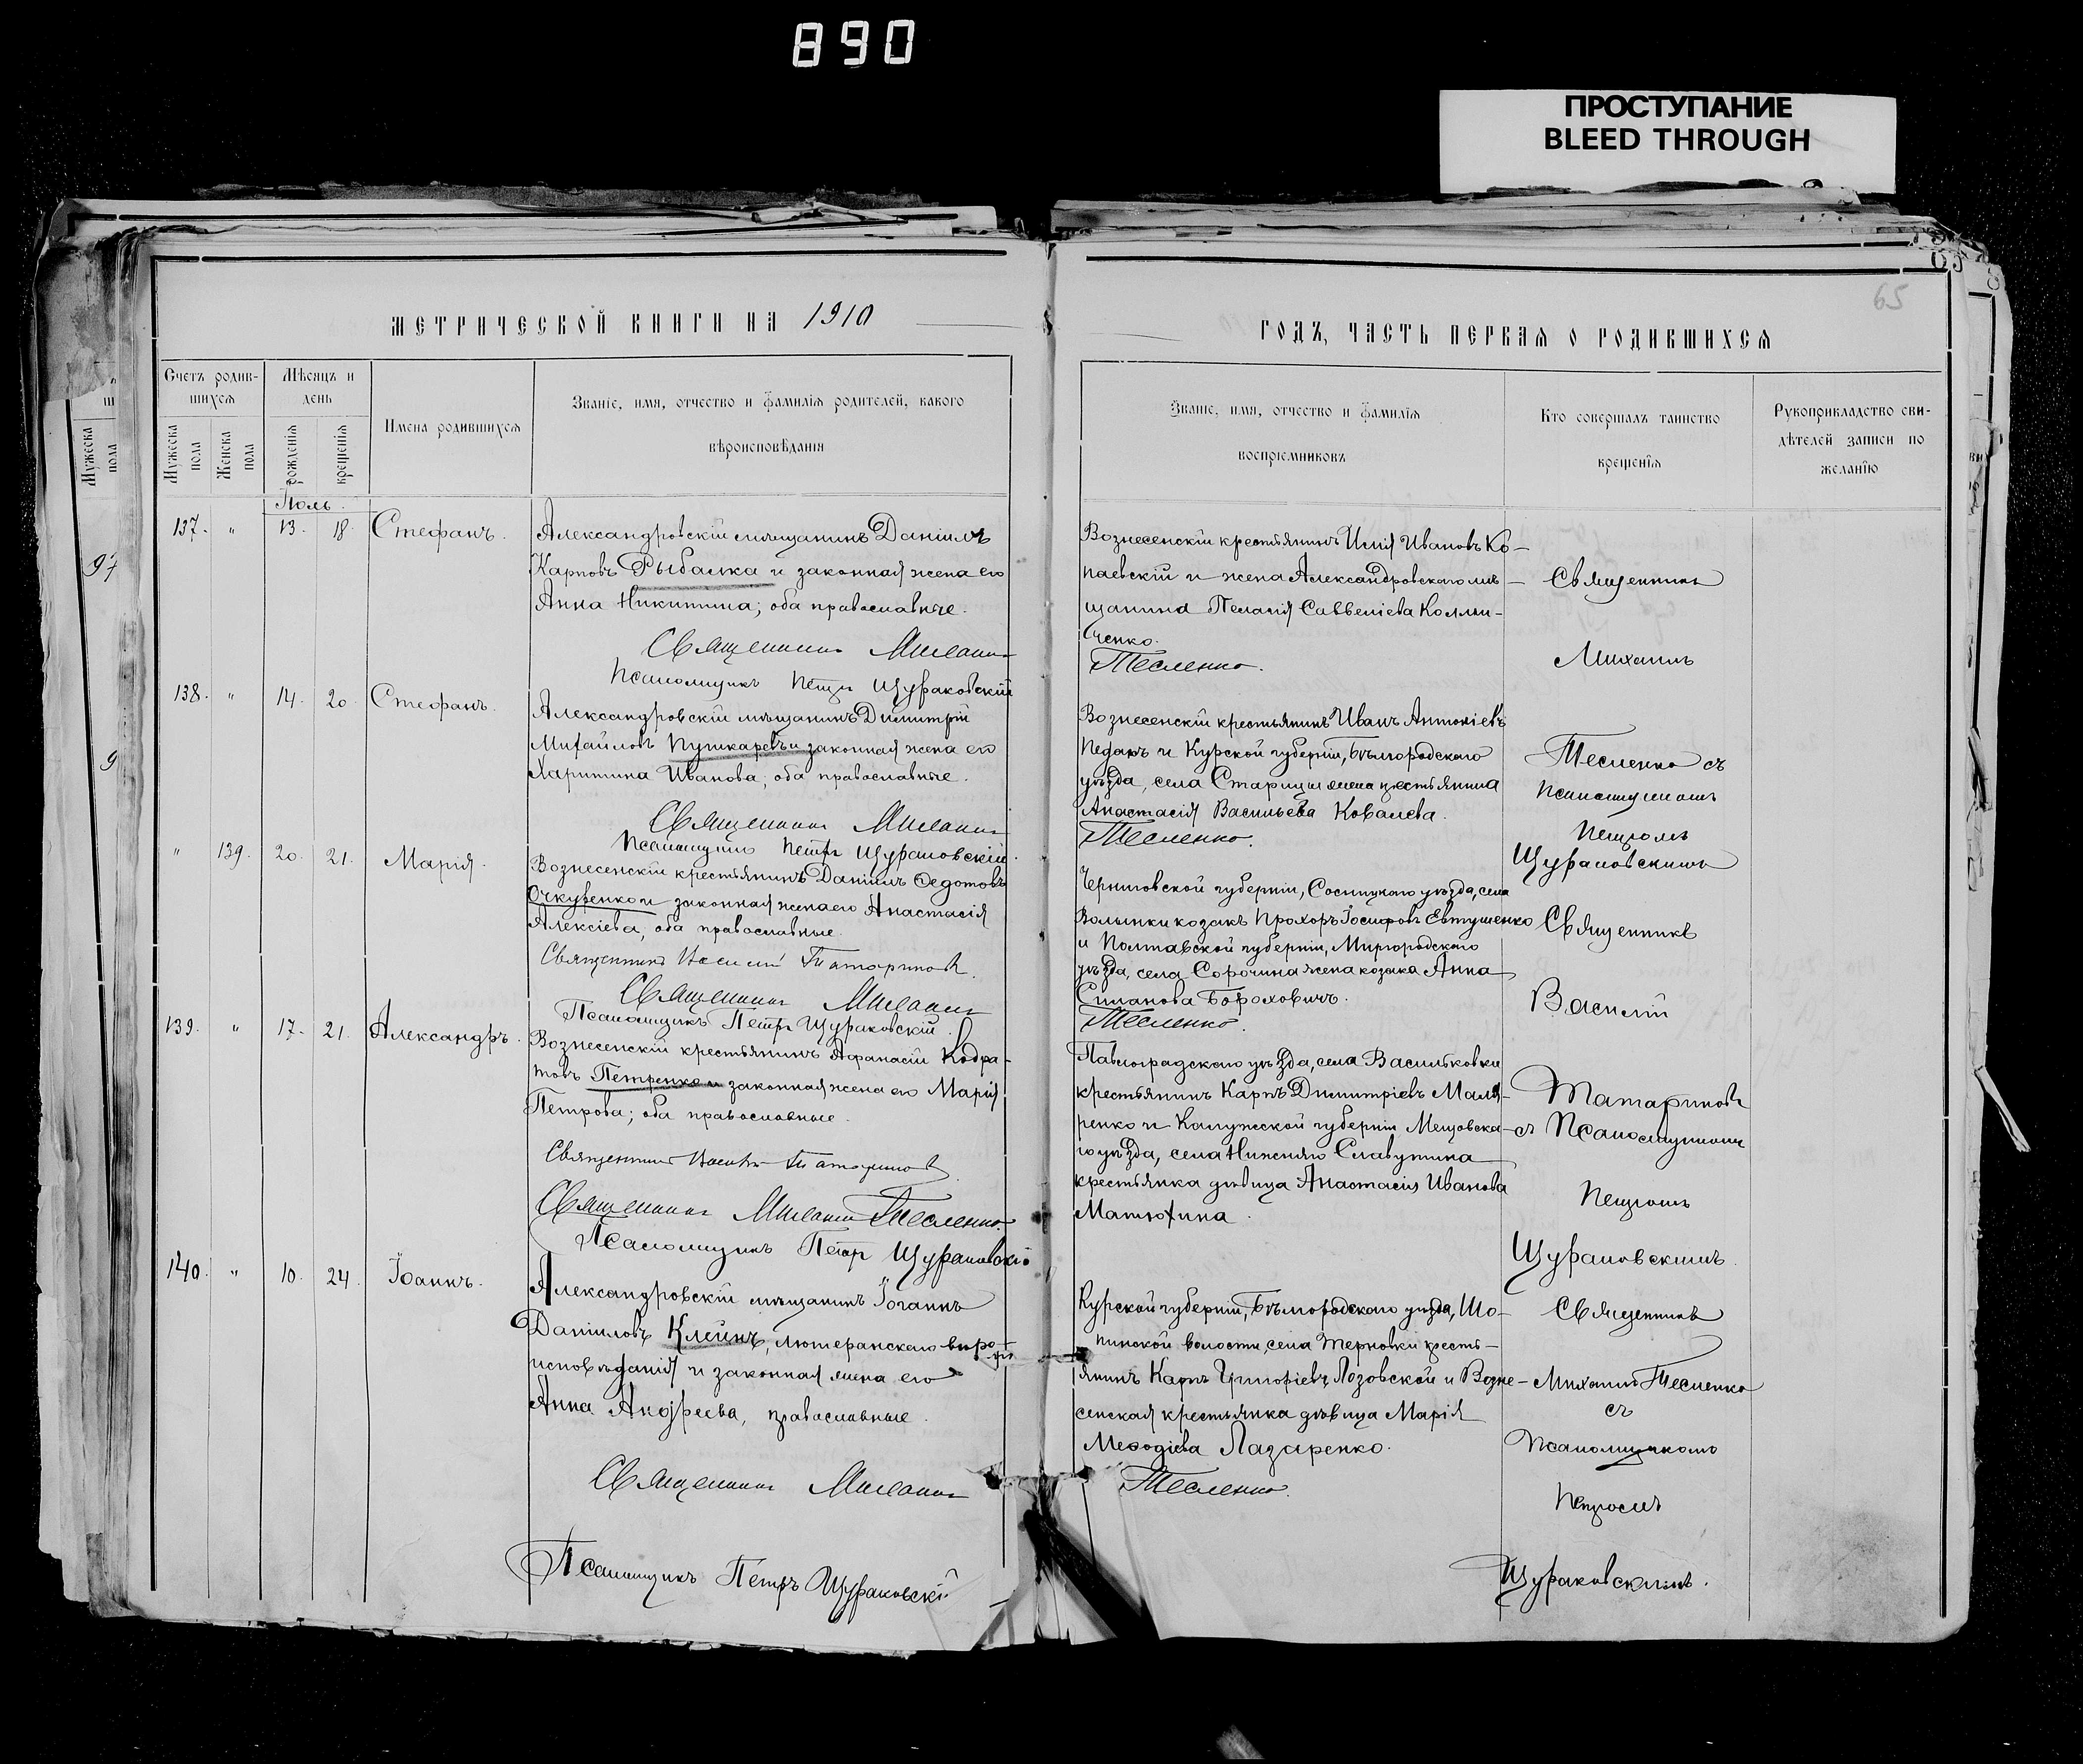 890
ПРОСТУПАНИЕ
BLEED THROUGH
65
МЕТРИЧЕСКОЙ КНИГИ НА 1910
ГОДЪ, ЧАСТЬ ПЕРВАЯ О РОДИВШИХСЯ
Счетъ родив-
шихся
Мужеска пола
Женска пола
Мѣсяцъ и
день
рожденія
крещенія
Имена родившихся
Званіе, имя, отчество и фамилія родителей, какого
вѣроисповѣданія
Званіе, имя, отчество и фамилія
воспріемниковъ
Кто совершалъ таинство
крещенія
Рукоприкладство сви-
дѣтелей записи по
желанію
Іюль.
137. " 13. 18. Стефанъ.
Александровскій мѣщанинъ Даніилъ
Карповъ Рыбалка и законная жена его
Анна Никитина; оба православные.
Священникъ Михаилъ
Псаломщикъ Петръ Щураковскій
Вознесенскій крестьянинъ Илія Ивановъ Ко-
паевскій и жена Александровскаго мѣ-
щанина Пелагія Савеліева Колми-
ченко.
Тесленко.
Священникъ
Михаилъ
138. " 14. 20. Стефанъ.
Александровскій мѣщанинъ Димитрій
Михайловъ Пушкаревъ и законная жена его
Харитина Иванова; оба православные.
Священникъ Михаилъ
Псаломщикъ Петръ Щураковскій.
Вознесенскій крестьянинъ Иванъ Антоніевъ
Педакъ и Курской губерніи, Бѣлгородскаго
уѣзда, села Старицы жена крестьянина
Анастасія Васильева Ковалева.
Тесленко.
Тесленко съ
псаломщикомъ
Петромъ
Щураковскимъ
" 139. 20. 21. Марія.
Вознесенскій крестьянинъ Даніилъ Ѳедотовъ
Очкуренко и законная жена его Анастасія
Алексіева, оба православные.
Священникъ Василій Татариновъ.
Священникъ Михаилъ
Псаломщикъ Петръ Щураковскій.
Черниговской губерніи, Сосницкаго уѣзда, села
Волынки козакъ Прохоръ Іосифовъ Евтушенко
и Полтавской губерніи, Миргородскаго
уѣзда, села Сорочина жена козака Анна
Борохович.
Тесленко.
Священникъ
Василій
139. " 17. 21. Александръ.
Вознесенскій крестьянинъ Афанасій Кодра-
товъ Петренко и законная жена его Марія
Петрова; оба православные.
Священникъ Василій Татариновъ
Священникъ Михаилъ Тесленко.
Псаломщикъ Петръ Щураковскій
Павлоградскаго уѣзда, села Васильковки
крестьянинъ Карпъ Димитріевъ Маля-
ренко и Калужской губерніи Мещовска-
го уѣзда, села Нижняго
крестьянка дѣвица Анастасія Иванова
Матюхина.
Татариновъ
съ Псаломщикомъ
Петромъ
Щураковскимъ.
140. " 10. 24. Іоаннъ.
Александровскій мѣщанинъ Іоганнъ
Даніиловъ Клейнъ, лютеранскаго вѣро-
исповѣданія и законная жена его
Анна Андреева, православные.
Священникъ Михаилъ
Псаломщикъ Петръ Щураковскій
Курской губерніи, Бѣлгородскаго уѣзда, Шо-
пинской волости, села Терновки кресть-
янинъ Карпъ Григоріевъ Лозовской и Возне-
сенская крестьянка дѣвица Марія
Меѳодіева Лазаренко.
Тесленко.
Священникъ
Михаилъ Тесленко
съ
Псаломщикомъ
Петромъ
Щураковскимъ.